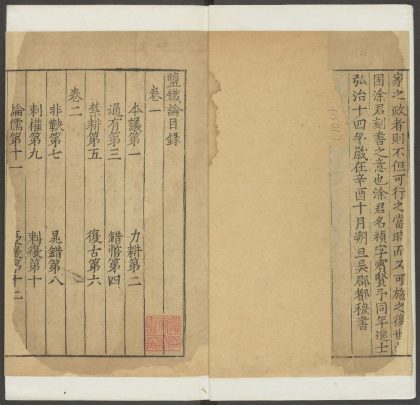 家之政者則不但可行之當時而又可施之後世
固涂君刻書之意也涂君名禎字賓賢予同年進士
弘治十四年歲在辛酉十月朔旦吳郡都穆書
鹽鐵論目録
卷一
本議第一　力耕第二
通有第三　錯幣第四
禁耕第五　復古第六
卷二
非鞅第七　晁錯第八
刺權第九　刺復第十
論儒第十一　憂邊第十二